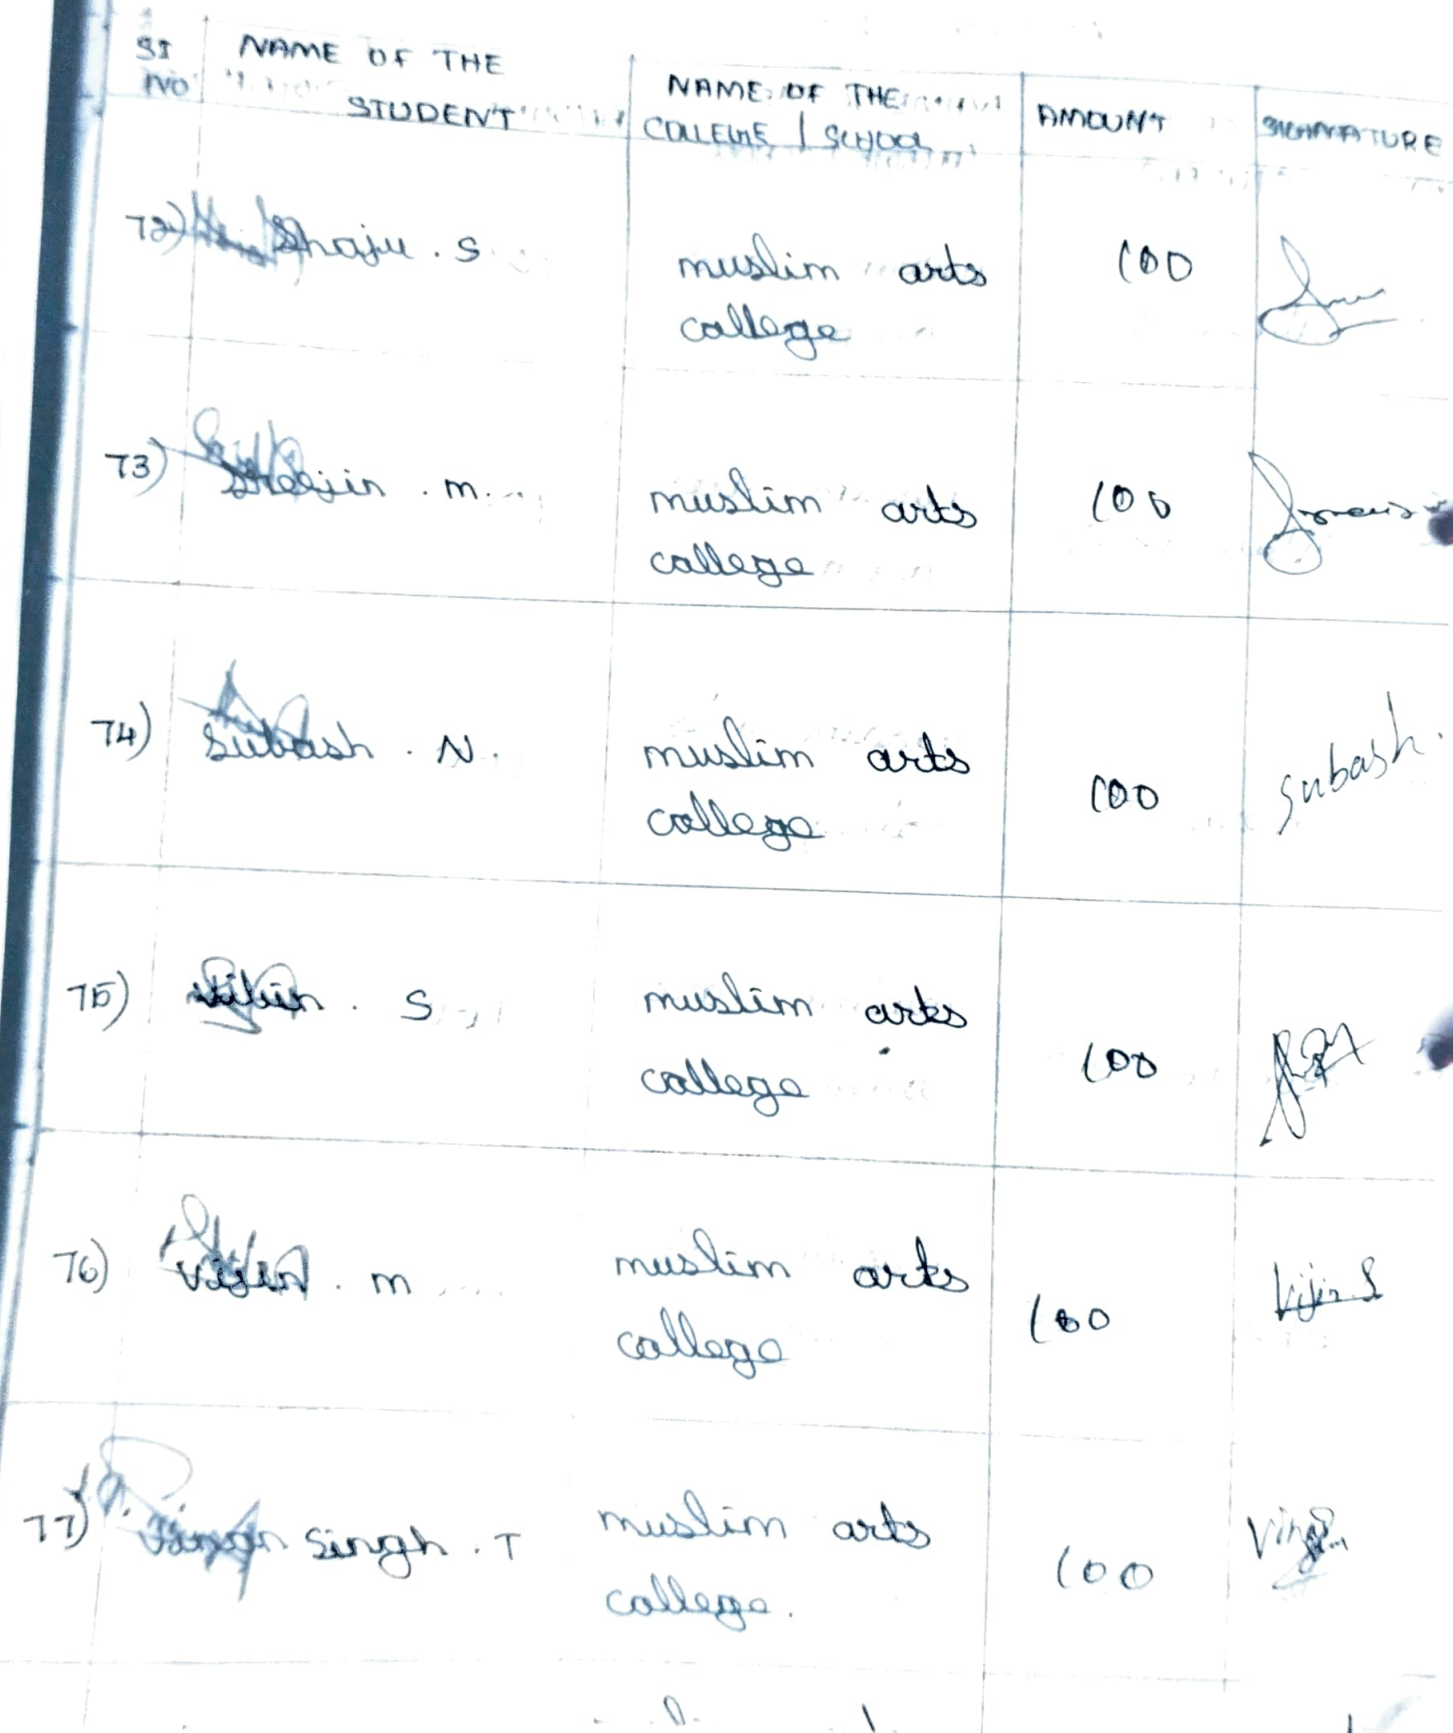 SI NO NAME OF THE STUDENT NAME OF THE COLLEGE | SCHOOL AMOUNT SIGNATURE
72) Shaju . S muslim arts college 100
73) Sreejin . m. muslim arts college 100
74) Subash . N. muslim arts college 100 Subash.
75) S muslim arts college 100
76) Vijin . m muslim arts college 100 Vijin S
77) Singh . T muslim arts college. 100